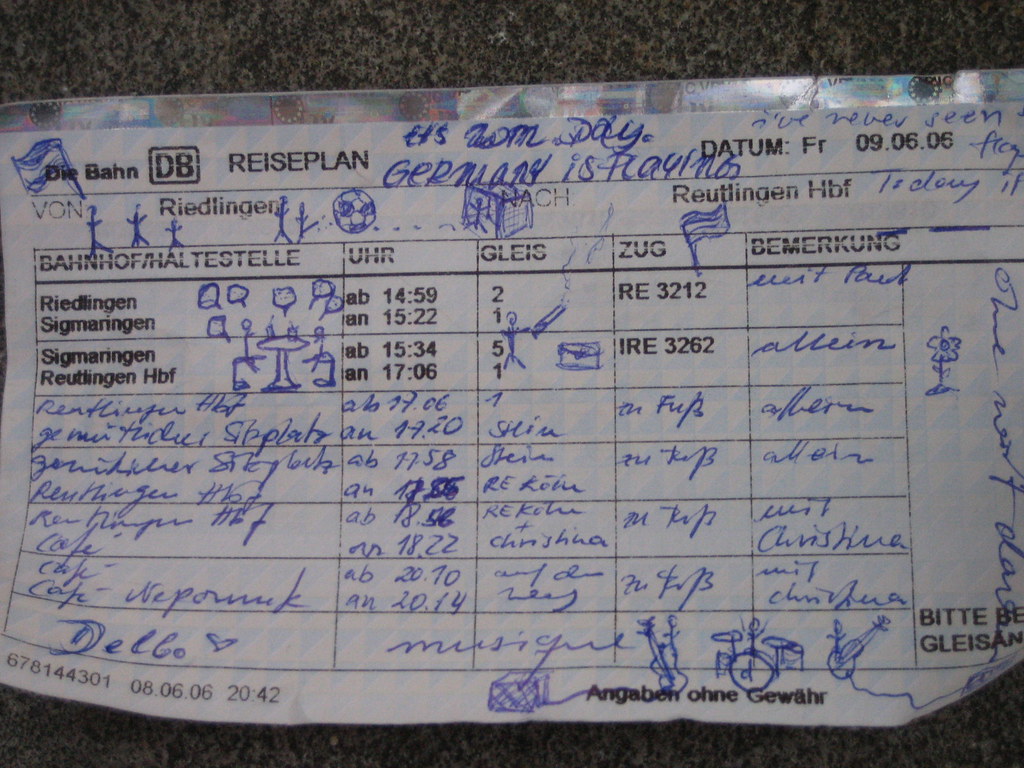 its mom Day. i've never seen
Die Bahn DB REISEPLAN GERMANY is PLAYING DATUM: Fr 09.06.06
VON: Riedlingen NACH: Reutlingen Hbf Today
BAHNHOF/HALTESTELLE UHR GLEIS ZUG BEMERKUNG
Riedlingen ab 14:59 2 RE 3212 mit Paul
Sigmaringen an 15:22 1
Sigmaringen ab 15:34 5 IRE 3262 allein
Reutlingen Hbf an 17:06 1
Reutlingen Hbf ab 17.06 1 zu Fuß allein
gemütlicher Sitzplatz an 17.20 Stein
gemütlicher Sitzplatz ab 17.58 Stein zu Fuß allein
Reutlingen Hbf an RE Köln
Reutlingen Hbf ab 18.16 RE Köln + zu Fuß mit
Café an 18.22 Christina Christina
Café ab 20.10 auf dem zu Fuß mit
Café Nepomuk an 20.14 weg Christina
Delbo musique
BITTE BE
GLEISAN
678144301 08.06.06 20:42 Angaben ohne Gewähr